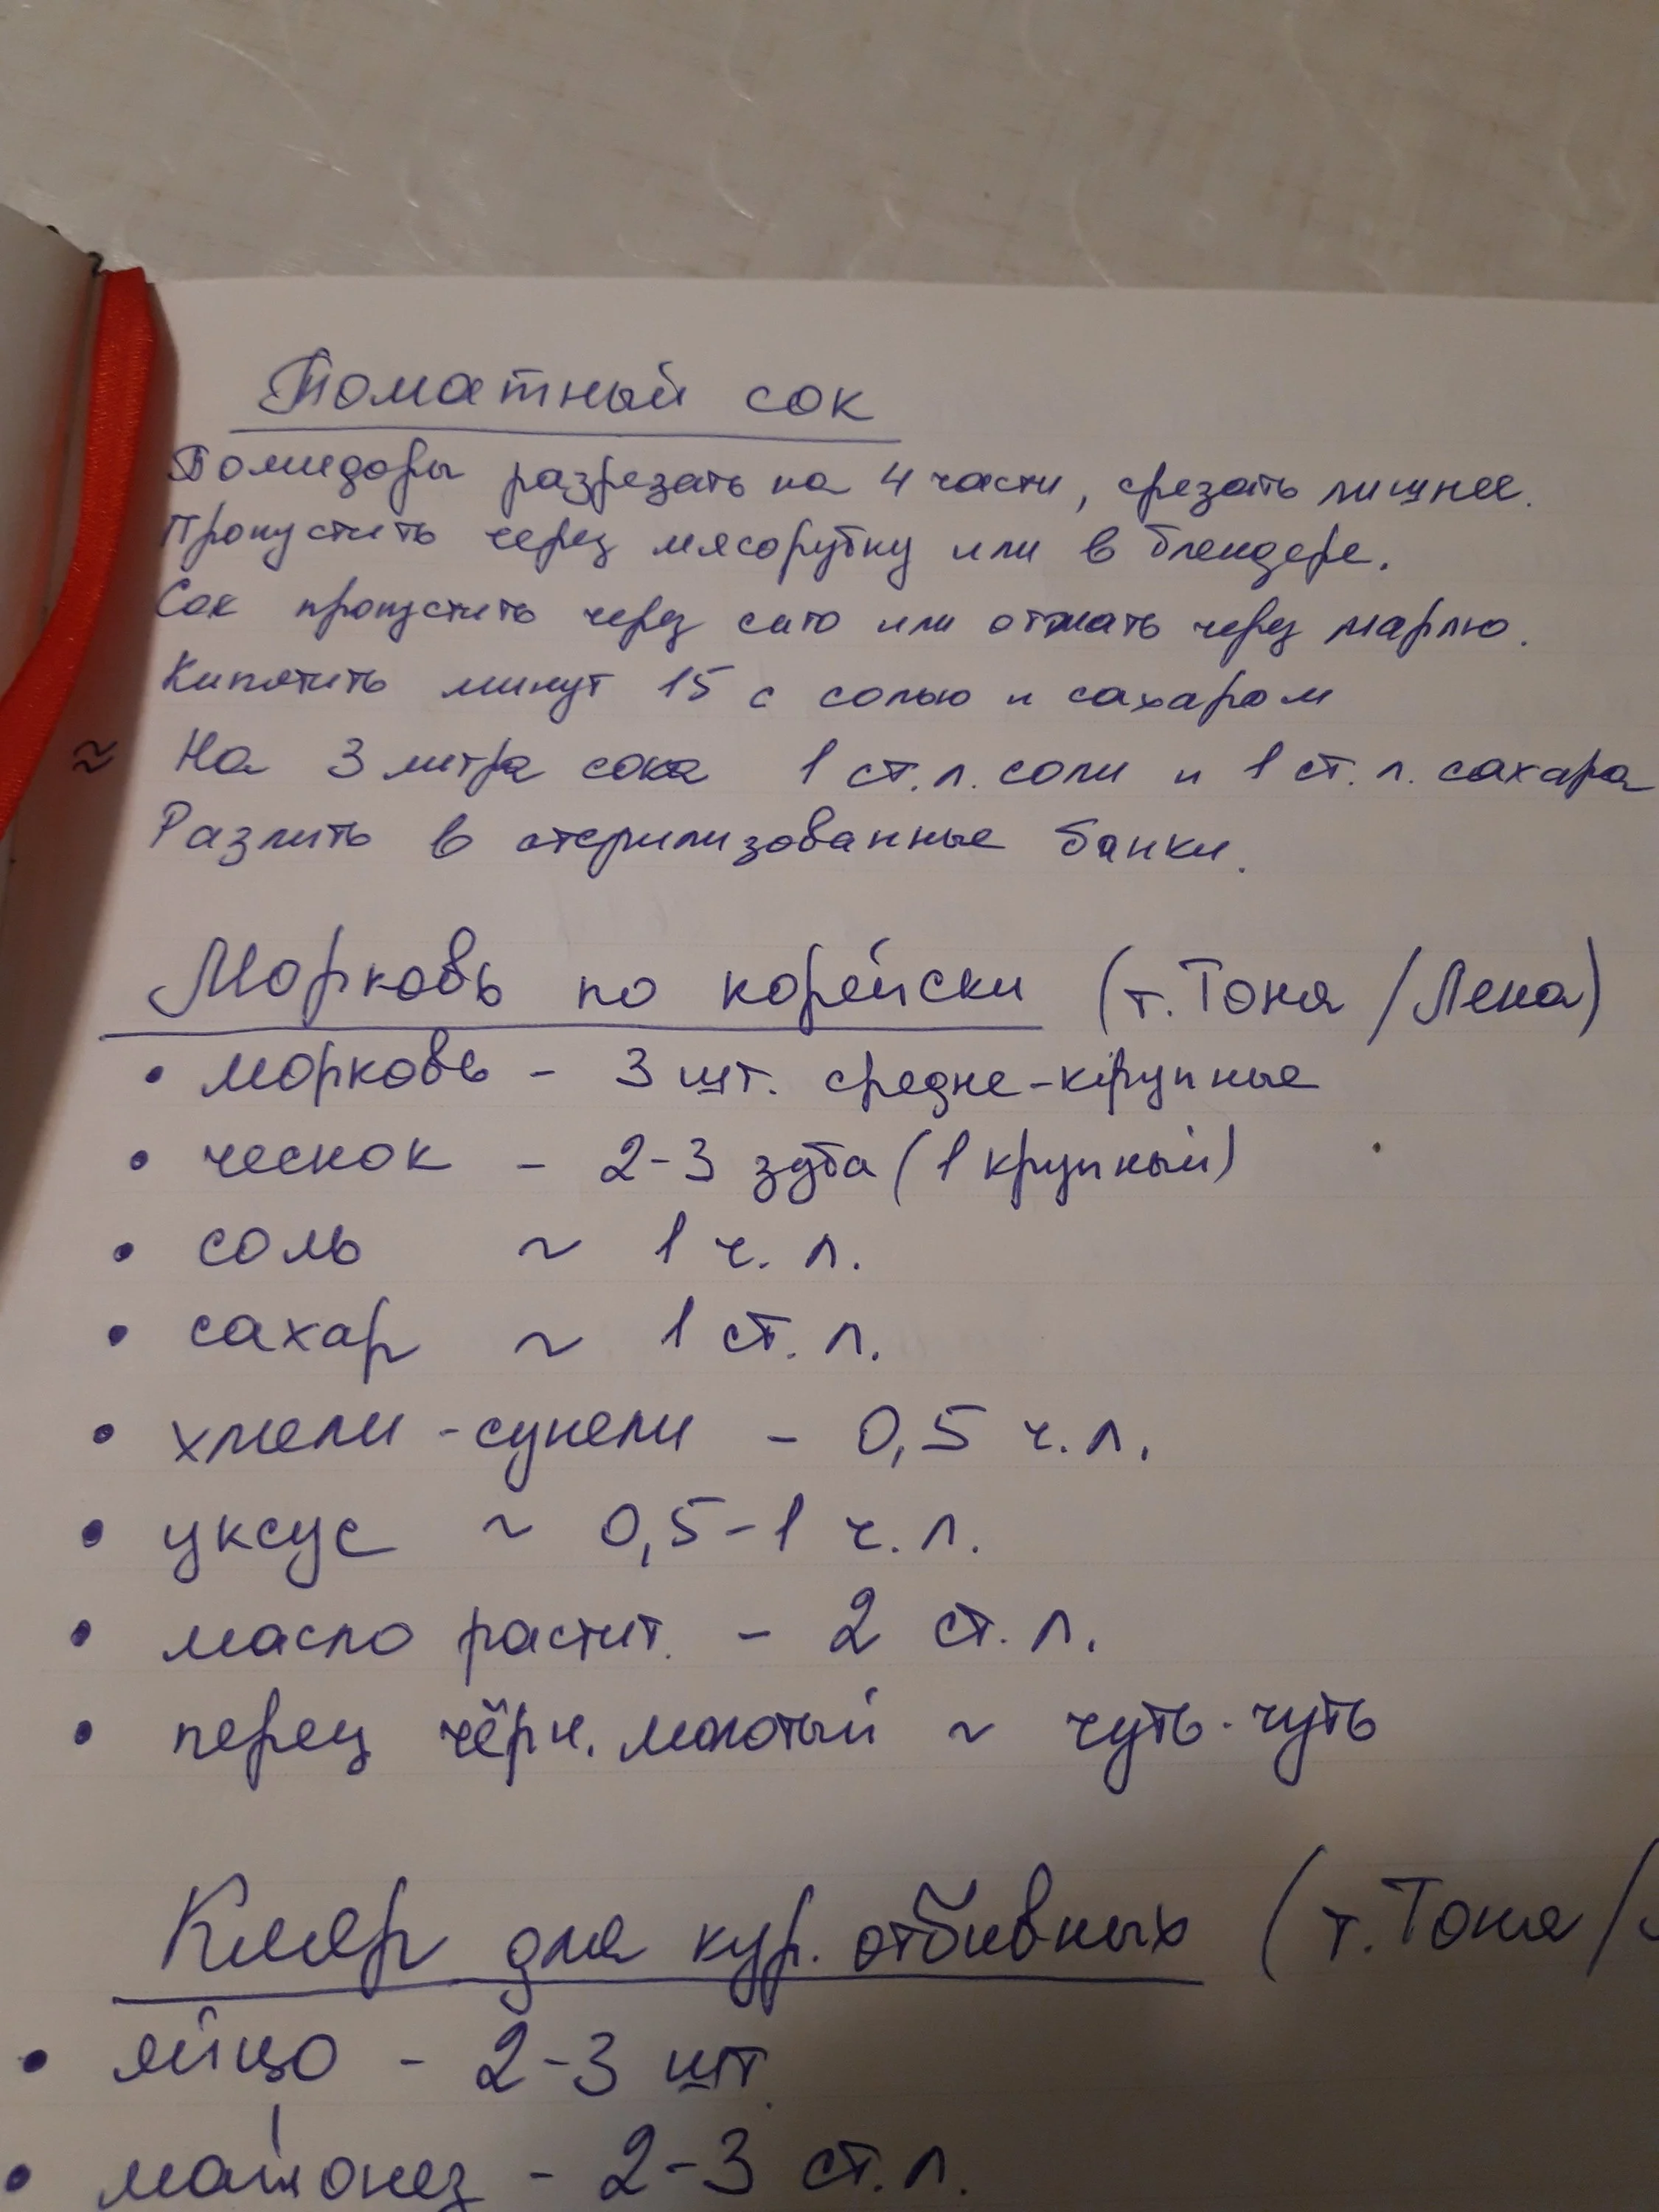 Томатный сок
Помидоры разрезать на 4 части, срезать лишнее.
Пропустить через мясорубку или в блендере.
Сок пропустить через сито или отжать через марлю.
Кипятить минут 15 с солью и сахаром
≈ На 3 литра сока 1 ст.л. соли и 1 ст.л. сахара
Разлить в стерилизованные банки.
Морковь по корейски (т.Тоня/Лена)
• морковь - 3 шт. средне-крупные
• чеснок - 2-3 зуба (1 крупный)
• соль ~ 1 ч.л.
• сахар ~ 1 ст.л.
• хмели-сунели - 0,5 ч.л.
• уксус ~ 0,5-1 ч.л.
• масло растит. - 2 ст.л.
• перец чёрн. молотый ~ чуть-чуть
Кляр для кур. отбивных (т.Тоня/
• яйцо - 2-3 шт.
• майонез - 2-3 ст.л.